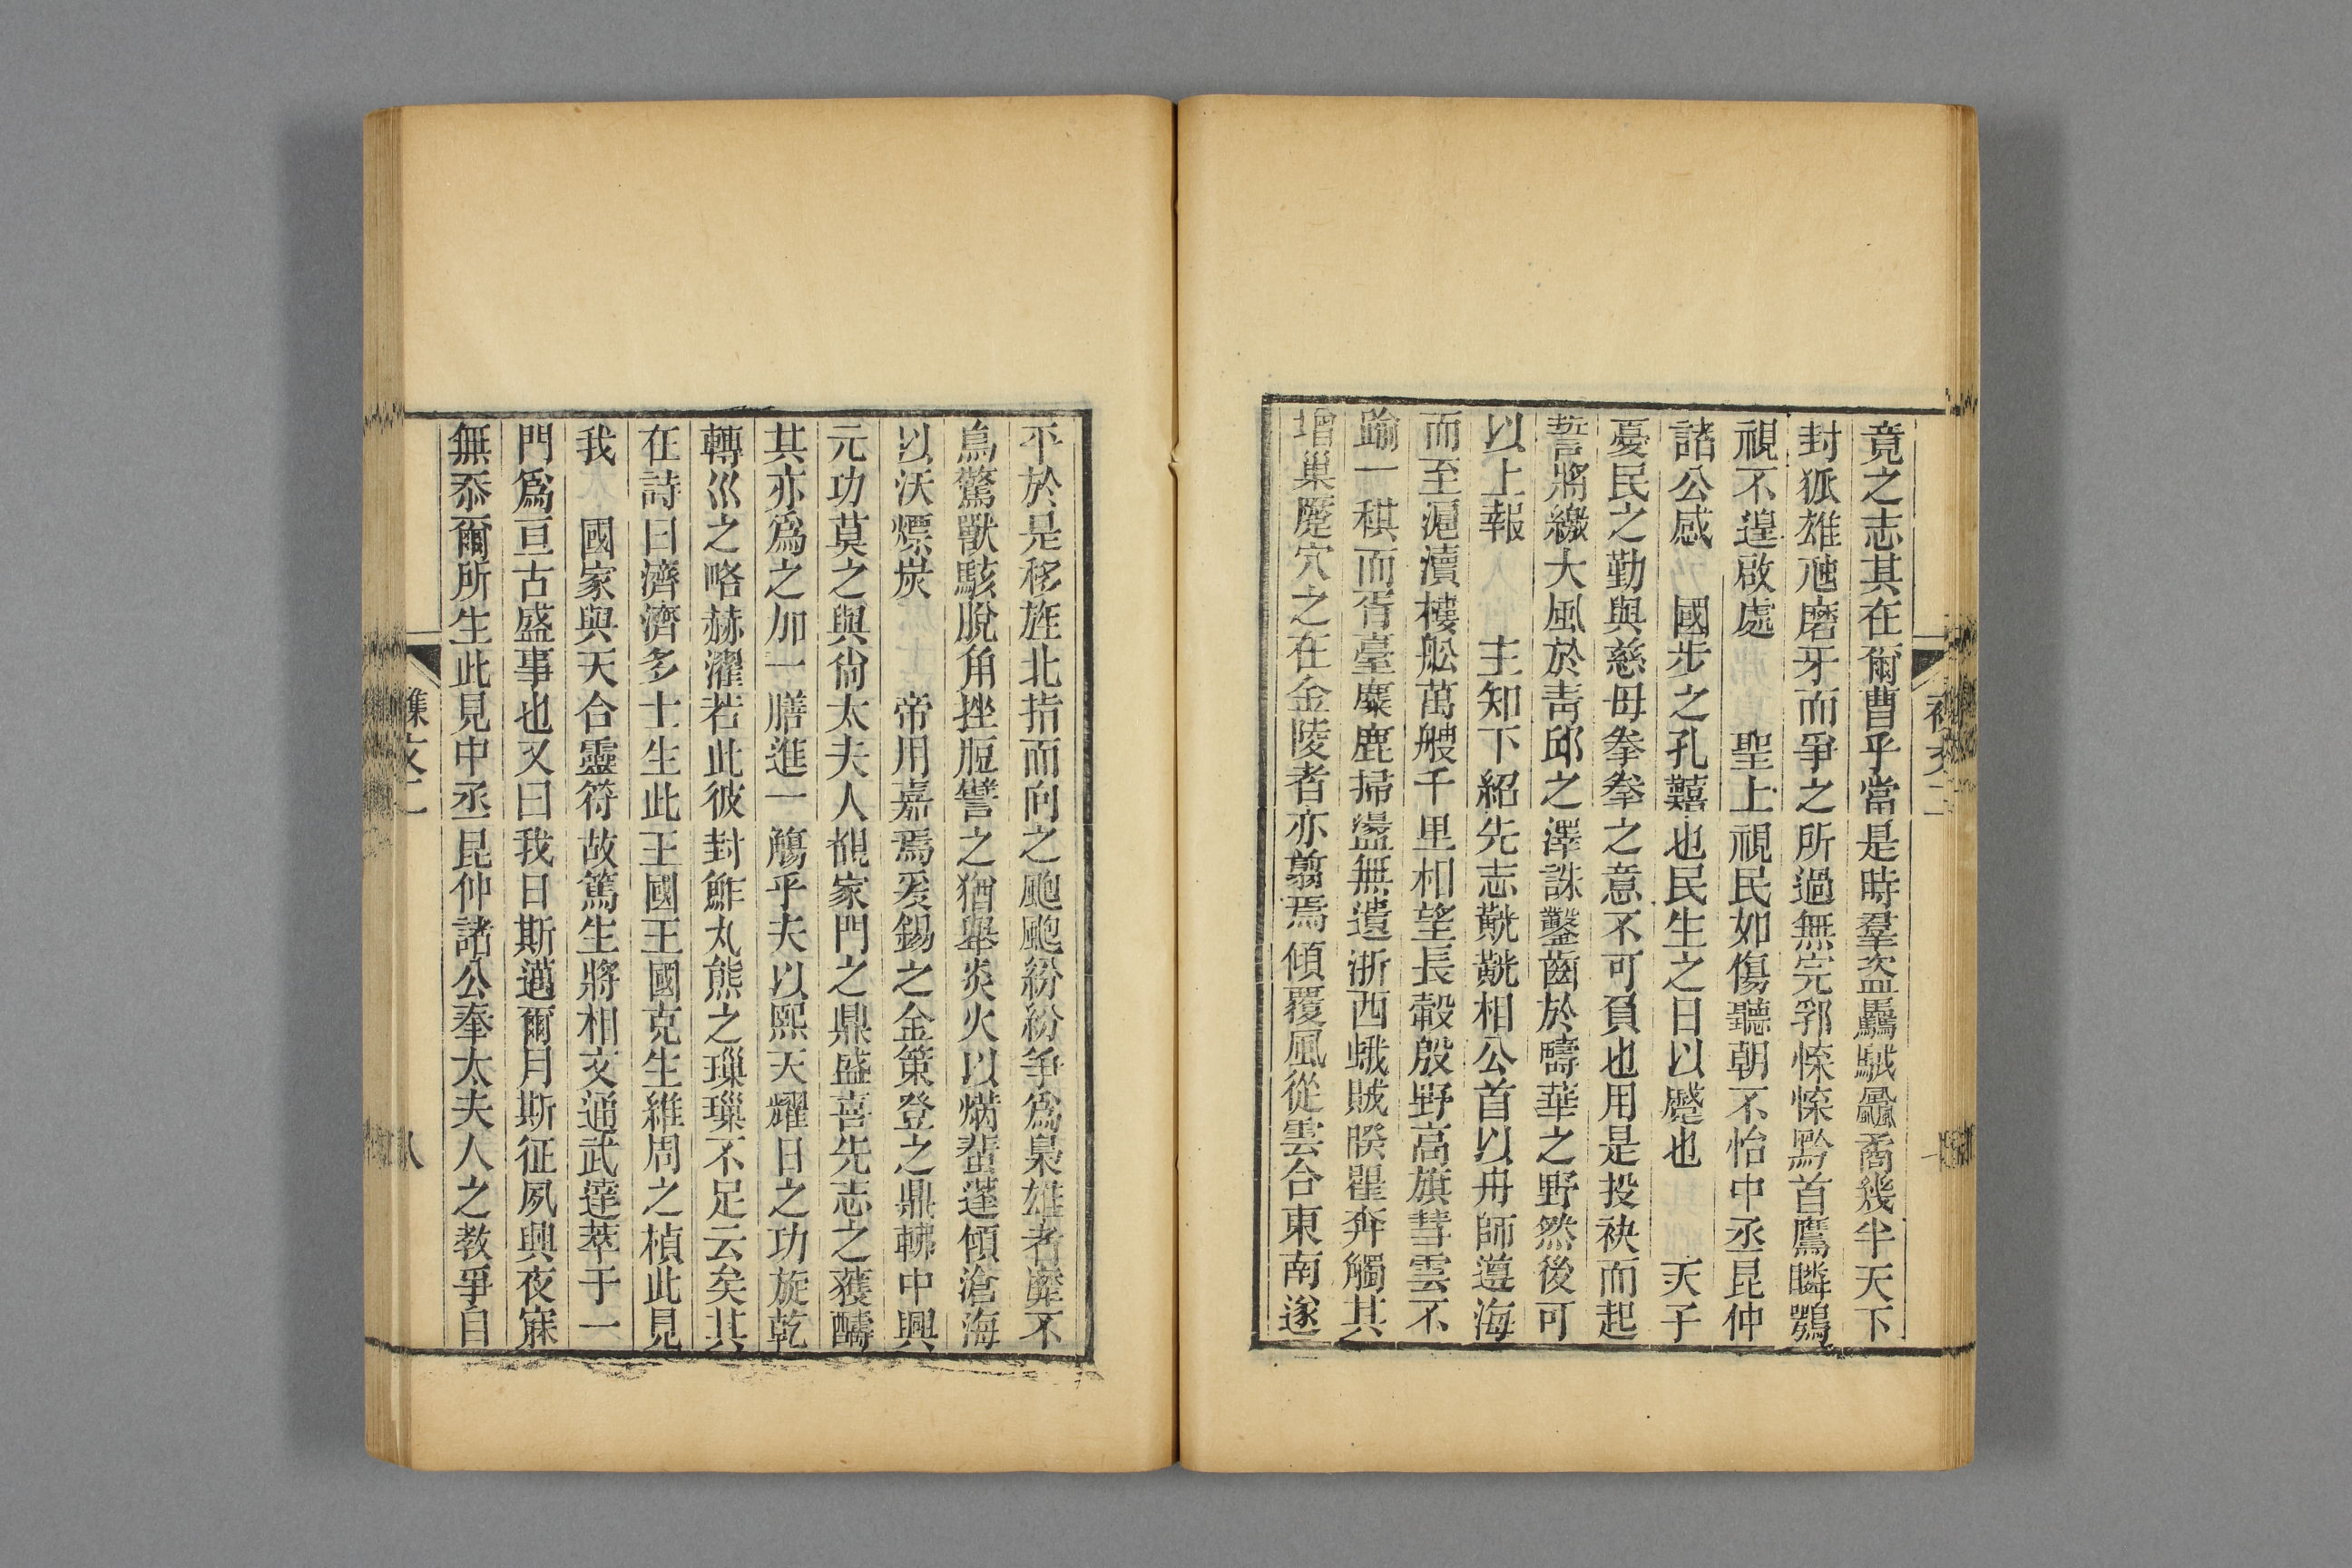 竟之志其在爾曹乎當是時羣盜驫駥飝矞幾半天下
封狐雄虺磨牙而爭之所過無完郛㥆㥆黔首鷹瞵鶚
視不遑啟處 聖上視民如傷聽朝不怡中丞昆仲
諸公感 國步之孔囏也民生之日以蹙也 天子
憂民之勤與慈母拳拳之意不可負也用是投袂而起
誓將繳大風於靑邱之澤誅鑿齒於疇華之野然後可
以上報 主知下紹先志觥觥相公首以舟師遵海
而至滬瀆樓舩萬艘千里相望長轂殷野高旗彗雲不
踰一稘而胥臺麋鹿掃盪無遺浙西蛾賊睽瞿奔觸其
增巢麗穴之在金陵者亦翦焉傾覆風從雲合東南遂
平於是移旌北指而向之颮颮紛紛争爲梟雄者孽不
鳥驚獸駭脫角挫脰譬之猶舉炎火以焫蜚蓬傾滄海
以沃熛炭 帝用嘉焉爰錫之金策登之鼎軿中興
元功莫之與尙太夫人覩家門之鼎盛喜先志之獲醻
其亦爲之加一膳進一觴乎夫以熙天耀日之功旋乾
轉巛之略赫濯若此彼封鮓丸熊之璅璅不足云矣其
在詩曰濟濟多士生此王國王國克生維周之楨此見
我 國家與天合靈符故篤生將相文通武達萃于一
門爲亘古盛事也又曰我日斯邁爾月斯征夙興夜寐
無忝爾所生此見中丞昆仲諸公奉太夫人之教爭自
雜文二
八